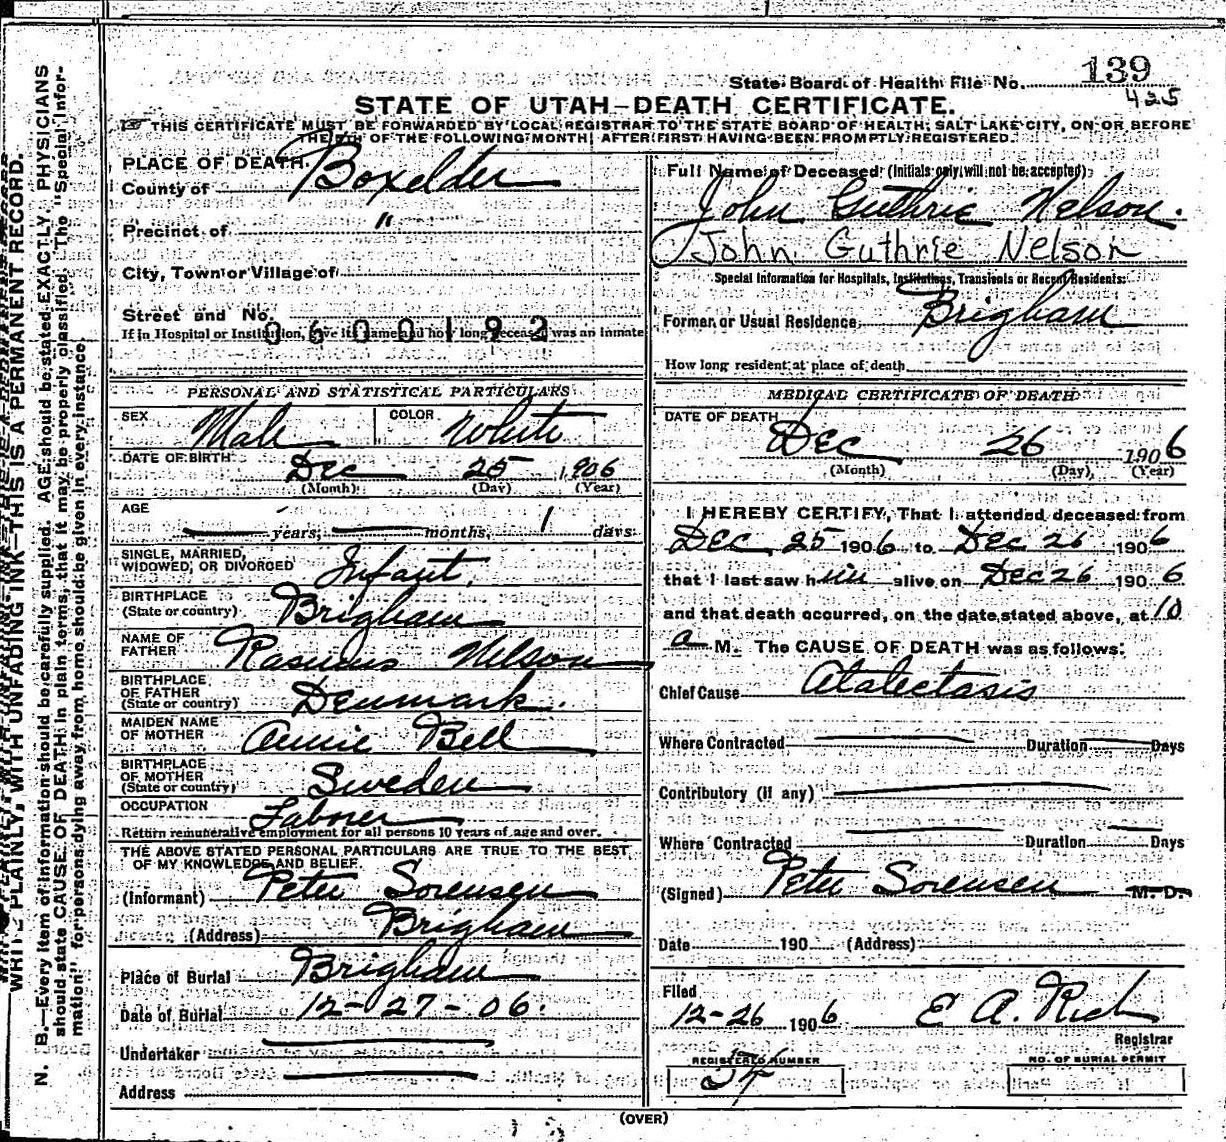 WRITE PLAINLY, WITH UNFADING INK—THIS IS A PERMANENT RECORD.
N. B.—Every item of information should be carefully supplied. AGE should be stated EXACTLY. PHYSICIANS
should state CAUSE OF DEATH in plain terms, that it may be properly classified. The "Special Infor-
mation" for persons dying away from home should be given in every instance.
State Board of Health File No. 139
425
STATE OF UTAH—DEATH CERTIFICATE.
THIS CERTIFICATE MUST BE FORWARDED BY LOCAL REGISTRAR TO THE STATE BOARD OF HEALTH, SALT LAKE CITY, ON OR BEFORE
THE OF THE FOLLOWING MONTH, AFTER FIRST HAVING BEEN PROMPTLY REGISTERED.
PLACE OF DEATH.
County of Boxelder
Precinct of "
City, Town or Village of
Street and No.
If in Hospital or Institution, give its name and how long deceased was an inmate
0600192
PERSONAL AND STATISTICAL PARTICULARS
SEX Male COLOR White
DATE OF BIRTH Dec 25 1906
(Month) (Day) (Year)
AGE
— years, — months, 1 days
SINGLE, MARRIED,
WIDOWED, OR DIVORCED Infant.
BIRTHPLACE
(State or country) Brigham
NAME OF
FATHER Rasmus Nelson
BIRTHPLACE
OF FATHER
(State or country) Denmark.
MAIDEN NAME
OF MOTHER Annie Bell
BIRTHPLACE
OF MOTHER
(State or country) Sweden
OCCUPATION Laborer
Return remunerative employment for all persons 10 years of age and over.
THE ABOVE STATED PERSONAL PARTICULARS ARE TRUE TO THE BEST
OF MY KNOWLEDGE AND BELIEF.
(Informant) Peter Sorensen
(Address) Brigham
Place of Burial Brigham
Date of Burial 12-27-06.
Undertaker
Address
Full Name of Deceased (Initials only will not be accepted)
John Guthrie Nelson.
John Guthrie Nelson
Special Information for Hospitals, Institutions, Transients or Recent Residents:
Former or Usual Residence Brigham
How long resident at place of death
MEDICAL CERTIFICATE OF DEATH
DATE OF DEATH
Dec 26 1906
(Month) (Day) (Year)
I HEREBY CERTIFY, That I attended deceased from
Dec 25 1906 to Dec 26 1906
that I last saw him alive on Dec 26 1906
and that death occurred, on the date stated above, at 10
a M. The CAUSE OF DEATH was as follows:
Chief Cause Atalectasis
Where Contracted Duration Days
Contributory (if any)
Where Contracted Duration Days
(Signed) Peter Sorensen M. D.
Date 190 (Address)
Filed
12-26 1906 E A. Rich
Registrar
REGISTERED NUMBER NO. OF BURIAL PERMIT
(OVER)